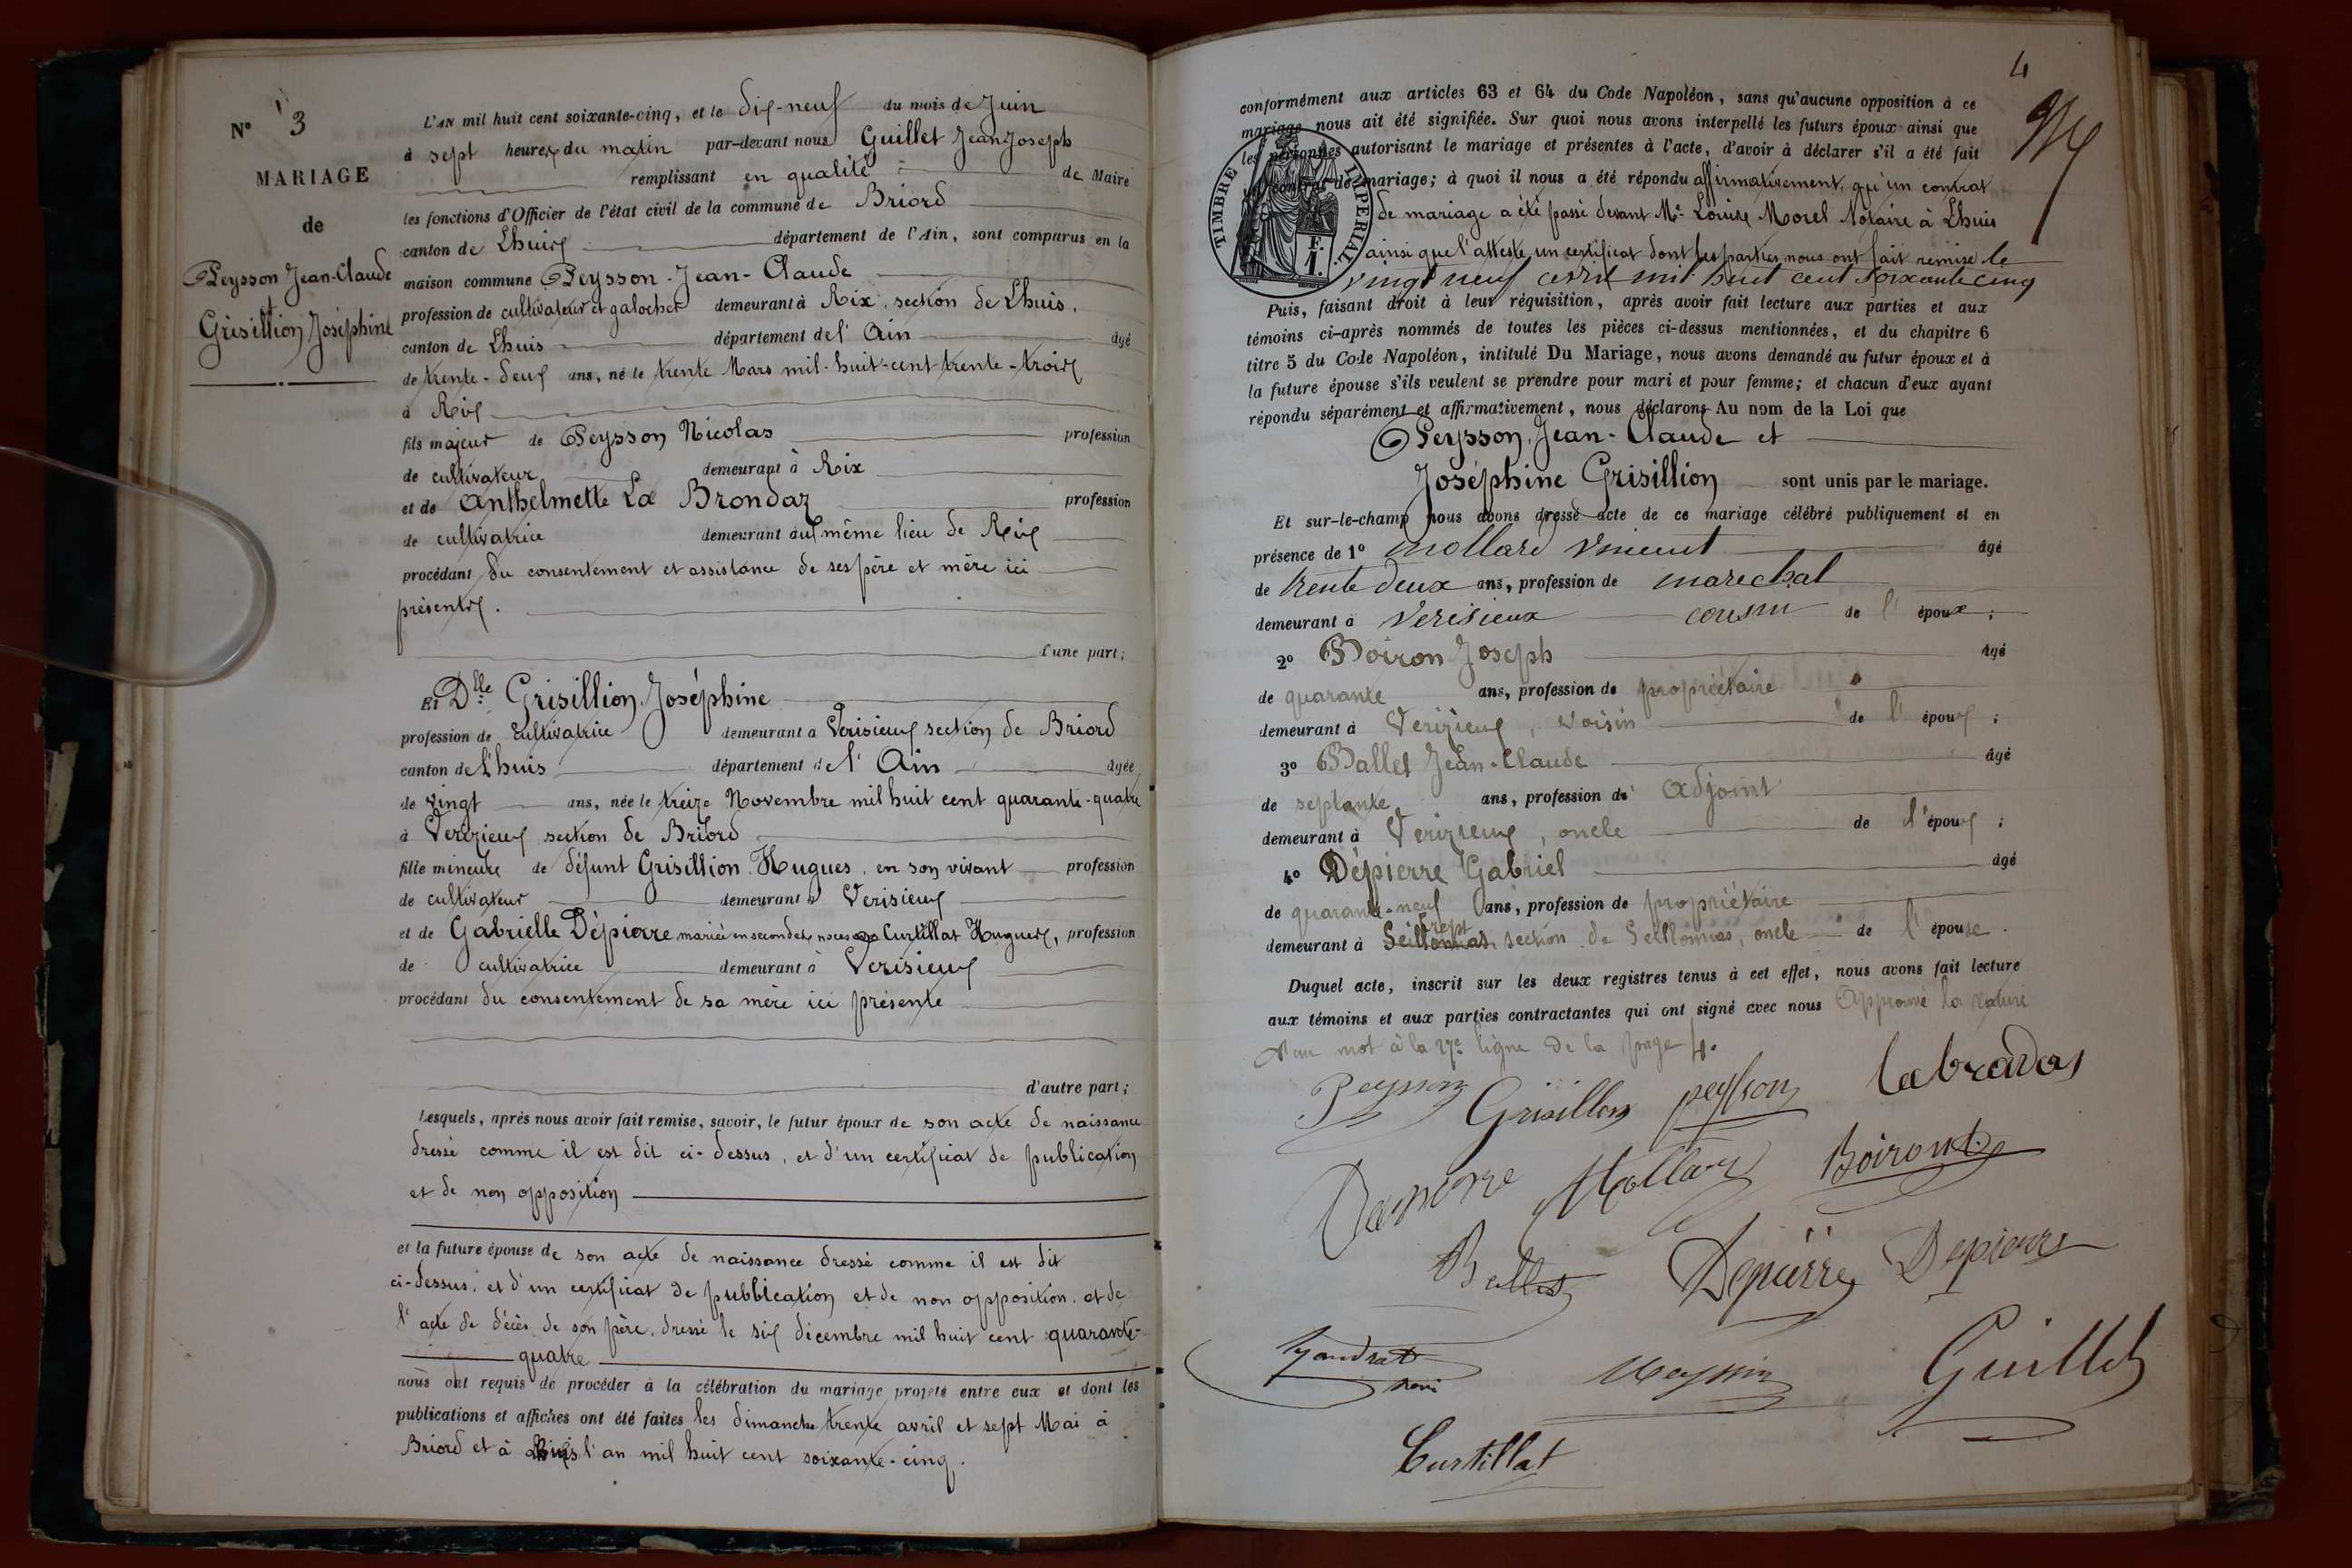 N° 3
MARIAGE
de
Peysson Jean-Claude
et
Grisillion Joséphine
L'AN mil huit cent soixante-cinq, et le dix-neuf du mois de Juin
à sept heures du matin par-devant nous Guillet Jean Joseph
remplissant en qualité de Maire
les fonctions d'Officier de l'état civil de la commune de Briord
canton de Lhuis département de l'Ain, sont comparus en la
maison commune Peysson Jean-Claude
profession de cultivateur et galocher demeurant à Rix, section de Lhuis,
canton de Lhuis département de l'Ain âgé
de trente-deux ans, né le trente Mars mil-huit-cent-trente-trois
à Rix
fils majeur de Peysson Nicolas profession
de cultivateur demeurant à Rix
et de Anthelmette La Brondaz profession
de cultivatrice demeurant au même lieu de Rix
procédant du consentement et assistance de ses père et mère ici
présents.
d'une part;
Et Dlle Grisillion Joséphine
profession de cultivatrice demeurant à Verisieux section de Briord
canton de Lhuis département de l'Ain âgée
de vingt ans, née le treize Novembre mil huit cent quarante-quatre
à Verizieux section de Briord
fille mineure de défunt Grisillion Hugues, en son vivant profession
de cultivateur demeurant à Verisieux
et de Gabrielle Dépierre mariée en secondes noces à Curtillat Hugues, profession
de cultivatrice demeurant à Verisieux
procédant du consentement de sa mère ici présente
d'autre part;
Lesquels, après nous avoir fait remise, savoir, le futur époux de son acte de naissance
dressé comme il est dit ci-dessus, et d'un certificat de publication
et de non opposition
et la future épouse de son acte de naissance dressé comme il est dit
ci-dessus, et d'un certificat de pubblication et de non opposition, et de
l'acte de décès de son père, dressé le six décembre mil huit cent quarante-
quatre
nous ont requis de procéder à la célébration du mariage projeté entre eux et dont les
publications et affiches ont été faites les dimanche trente avril et sept Mai à
Briord et à Lhuis l'an mil huit cent soixante-cinq.
4
conformément aux articles 63 et 64 du Code Napoléon, sans qu'aucune opposition à ce
mariage nous ait été signifiée. Sur quoi nous avons interpellé les futurs époux ainsi que
les personnes autorisant le mariage et présentes à l'acte, d'avoir à déclarer s'il a été fait
un contrat de mariage; à quoi il nous a été répondu affirmativement, qu'un contrat
de mariage a été passé devant Me Louise Morel Notaire à Lhuis
ainsi que l'atteste un certificat dont les parties nous ont fait remise le
vingt neuf avril mil huit cent soixante cinq
TIMBRE IMPERIAL
F.
1.
Puis, faisant droit à leur réquisition, après avoir fait lecture aux parties et aux
témoins ci-après nommés de toutes les pièces ci-dessus mentionnées, et du chapitre 6
titre 5 du Code Napoléon, intitulé Du Mariage, nous avons demandé au futur époux et à
la future épouse s'ils veulent se prendre pour mari et pour femme; et chacun d'eux ayant
répondu séparément et affirmativement, nous déclarons Au nom de la Loi que
Peysson, Jean-Claude et
Joséphine Grisillion sont unis par le mariage.
Et sur-le-champ nous avons dressé acte de ce mariage célébré publiquement et en
présence de 1° Mollard Vincent âgé
de trente deux ans, profession de marechal
demeurant à Verisieux cousin de l'époux;
2° Boiron Joseph âgé
de quarante ans, profession de propriétaire
demeurant à Verizieux, voisin de l'époux;
3° Ballet Jean-Claude âgé
de septante ans, profession de adjoint
demeurant à Verizieux, oncle de l'époux;
4° Dépierre Gabriel âgé
de quarante-neuf ans, profession de propriétaire
demeurant à Seillonnas section de Seillonnas, oncle de l'épouse.
Duquel acte, inscrit sur les deux registres tenus à cet effet, nous avons fait lecture
aux témoins et aux parties contractantes qui ont signé avec nous Approuvé la rature
d'un mot à la 27e ligne de la page 4.
Peysson Grisillion peysson labrondas
Depierre Mollard Boiron
Ballet Depierre Depierre
Guillet
Curtillat